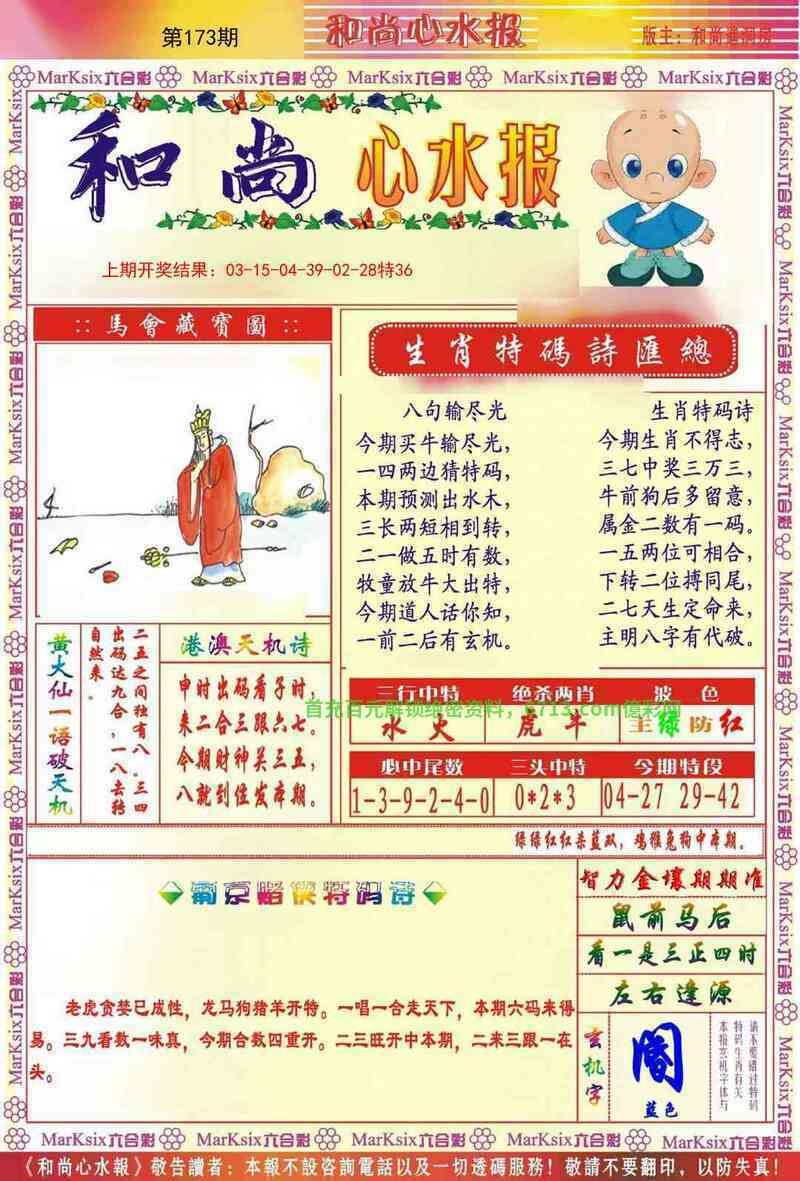 第173期
和尚心水报
版主：和尚进洞房
MarKsix六合彩 MarKsix六合彩 MarKsix六合彩 MarKsix六合彩 MarKsix六合彩
和尚 心水报
上期开奖结果：03-15-04-39-02-28特36
:: 馬會藏寳圖 ::
生肖特碼詩匯總
八句输尽光
今期买牛输尽光，
一四两边猜特码，
本期预测出水木，
三长两短相到转，
二一做五时有数，
牧童放牛大出特，
今期道人话你知，
一前二后有玄机。
生肖特码诗
今期生肖不得志，
三七中奖三万三，
牛前狗后多留意，
属金二数有一码。
一五两位可相合，
下转二位搏同尾，
二七天生定命来，
主明八字有代破。
黄大仙一语破天机
二五之间独有八。三四
出码达九合，一八去转
自然来。
港澳天机诗
申时出码看子时，
来二合三跟六七。
今期财神关三五，
八就到位发本期。
三行中特 绝杀两肖 波 色
水 火 虎 牛 主绿防红
首充百元解锁绝密资料，6713.com億彩网
必中尾数 三头中特 今期特段
1-3-9-2-4-0 0*2*3 04-27 29-42
绿绿红红杀蓝双，鸡猴兔狗中本期。
葡京赌侠特码诗
老虎贪婪已成性，龙马狗猪羊开特。一唱一合走天下，本期六码来得
易。三九看数一味真，今期合数四重开。二三旺开中本期，二来三跟一在
头。
智力金壤期期准
鼠前马后
看一是三正四时
左右逢源
玄机字
阁
蓝色
请不要错过特码
特码生肖有关
本报玄机字体与
MarKsix六合彩 MarKsix六合彩 MarKsix六合彩 MarKsix六合彩 MarKsix六合彩
《和尚心水報》敬告讀者：本報不設咨詢電話以及一切透碼服務！敬請不要翻印，以防失真！